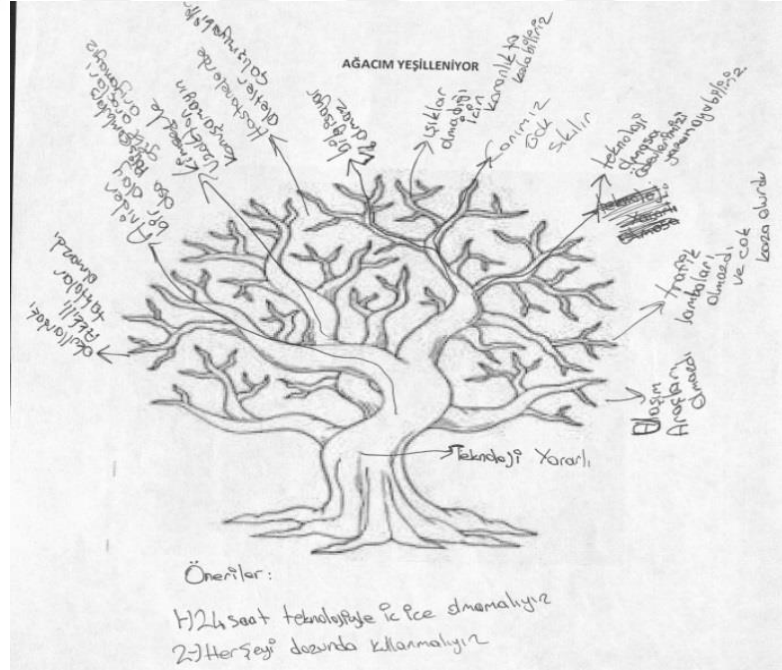 AĞACIM YEŞİLLENİYOR
okullardaki
Akıllı
tahtalar
olmazdı
Aniden
bir olay
olsa
arayamayız
Kimseyle
konuşamayız
Hastanelerde
aletler
çalışmayabilir
bilgisayar
olmaz
ışıklar
olmadığı
için
karanlıkta
kalabiliriz
canımız
çok
sıkılır
teknoloji
olmasa
ödevlerimizi
yapamayabiliriz
teknoloji
olmasa
trafik
lambaları
olmazdı
ve çok
kaza olurdu
Ulaşım
Araçları
olmazdı
Teknoloji Yararlı
Öneriler:
1-) 24 saat teknolojiyle iç içe olmamalıyız
2-) Herşeyi dozunda kullanmalıyız